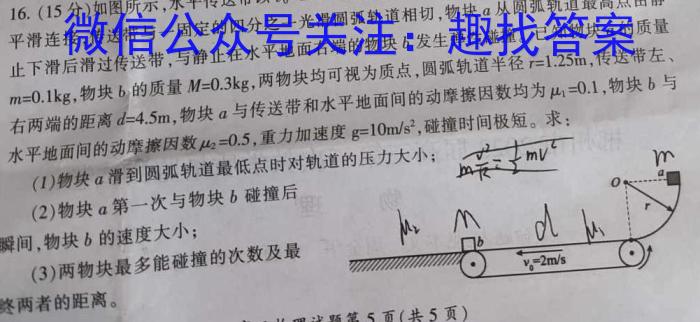 16. (15 分)如图所示,水平传送带以
平滑连接,传送带与一固定的四分之一光滑圆弧轨道相切,物块 a 从圆弧轨道最高点由静
止下滑后滑过传送带,与静止在水平地面右端的物块 b 发生弹性碰撞。已知物块 a 的质量
m=0.1kg,物块 b 的质量 M=0.3kg,两物块均可视为质点,圆弧轨道半径 r=1.25m,传送带左、
右两端的距离 d=4.5m,物块 a 与传送带和水平地面间的动摩擦因数均为 μ₁=0.1,物块 b 与
水平地面间的动摩擦因数 μ₂=0.5,重力加速度 g=10m/s²,碰撞时间极短。求:
(1)物块 a 滑到圆弧轨道最低点时对轨道的压力大小;
(2)物块 a 第一次与物块 b 碰撞后
瞬间,物块 b 的速度大小;
(3)两物块最多能碰撞的次数及最
终两者的距离。
微信公众号关注:趣找答案
m a
O r
μ₂ M b d μ₁
v₀=2m/s
物理试题第 5 页(共 5 页)